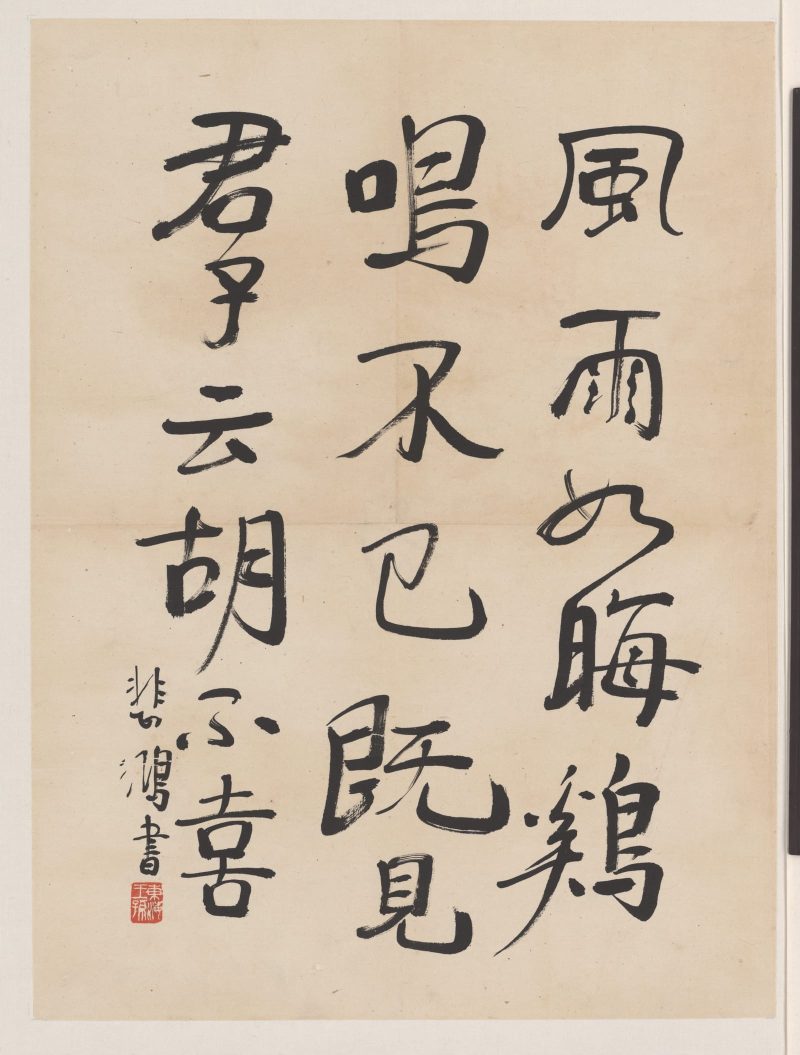 風雨如晦鷄
鳴不已既見
君子云胡不喜
悲鴻書
東海王孫